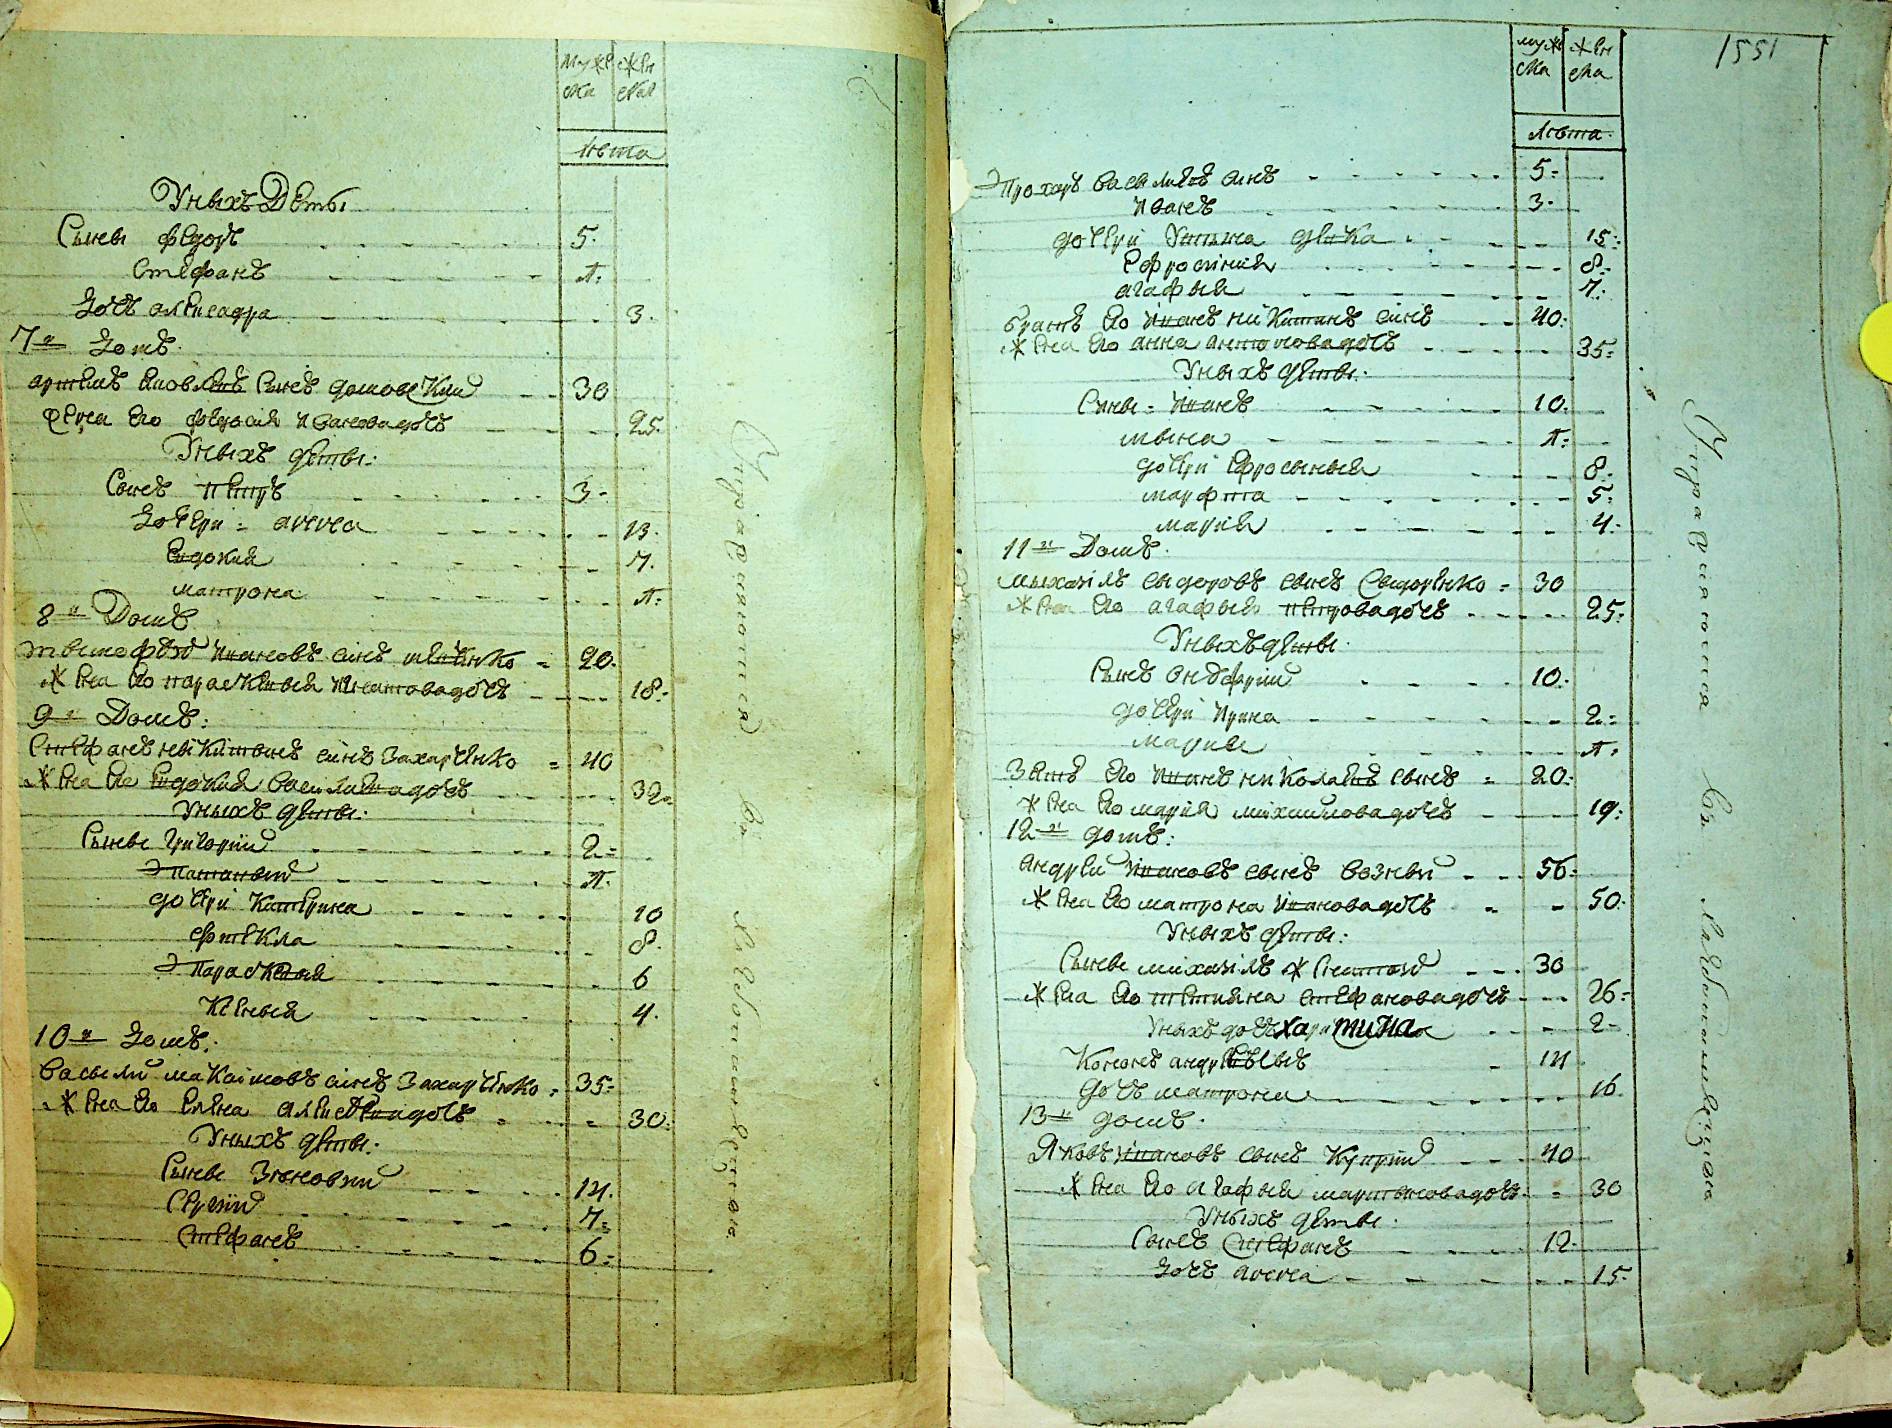 муже ска жен ска
лѣта
Уныхъ Дѣти
Сыны ѳедоръ 5
Стефанъ л:
Дочъ алеѯадра 3.
7й Домъ
артемъ яковлевъ сынъ домове 30
жена его ѳедосия ивановадочъ 25.
Уныхъ дѣты:
Сынъ петръ 3
Дочери: анна 13.
евдокия 7.
матрона л:
8й Домъ
ивановъ синъ 20.
жена его параскевия игнатовадочъ 18.
9й Домъ:
Стефанъ никитинъ синъ Захарченко 40
жена его евдокия василиевадочъ 32
Уныхъ дѣты:
Сыны григорий 2
л.
дочери катерина 10
ѳекла 8.
Параскевия 6
Ксения 4.
10й Домъ:
Василий максимовъ синъ Захарченко 35
жена его елена алеѯѣевадочъ 30:
Уныхъ дѣты:
Сыны Зѣновий 14.
Сергий 7
Стефанъ 6
Упражняются в Хлебопашестве
1551
муже ска жен ска
лѣта
Прохоръ василиевъ синъ 5
иванъ 3.
дочери Улияна дѣвка 15
ефросиния 8.
агафия 7.
братъ его иванъ никитинъ синъ 40:
жена его анна антоновадочъ 35
Уныхъ дѣты:
Сыны: иванъ 10.
мына л:
дочери ефросыния 8.
марфа 5.
мария 4.
11й Домъ.
мыхаилъ сыдоровъ сынъ Сыдоренко 30
жена его агафия петровадочъ 25:
Уныхъ дѣты:
Сынъ онуфрий 10.
дочери ирина 2
мария л.
Зять его иванъ николаевъ сынъ 20:
жена его мария михайловадочъ 19:
12й домъ:
андрей ивановъ сынъ возный 56:
жена его матрона ивановадочъ 50.
Уныхъ дѣты:
Сыны михаилъ женатый 30
жена его татияна стефановадочъ 26
Уныхъ дочъ харитина 2
Кононъ андреевъ 14
дочъ матрона 16.
13й домъ.
Яковъ ивановъ сынъ Куприй 40
жена его агафия мартыновадочъ 30
Уныхъ дѣты.
Сынъ Стефанъ 12.
Дочъ анна 15
Упражняются в Хлебопашестве